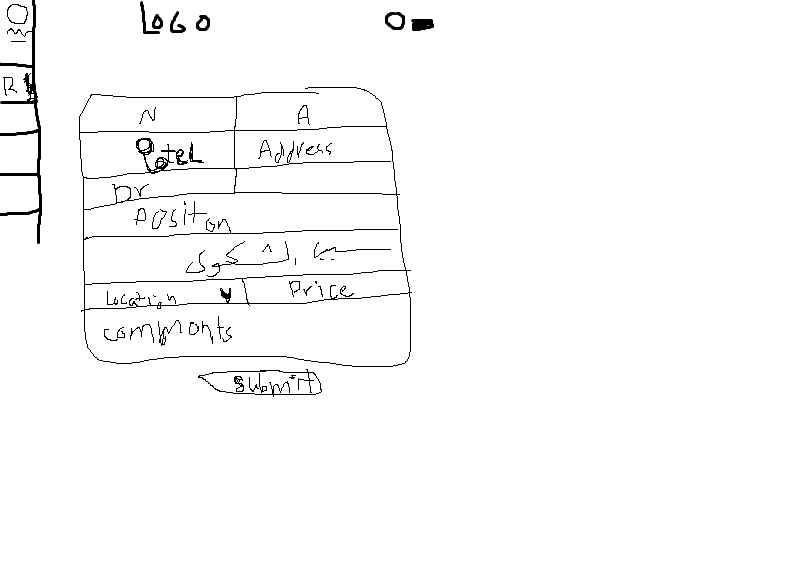 LOGO
R
N A
tEL Address
Dr
Positon
الشكوى
Location Price
commonts
submit